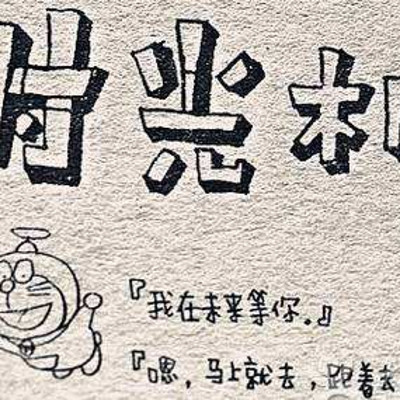 时光机
『我在未来等你。』
『嗯，马上就去，跟着去